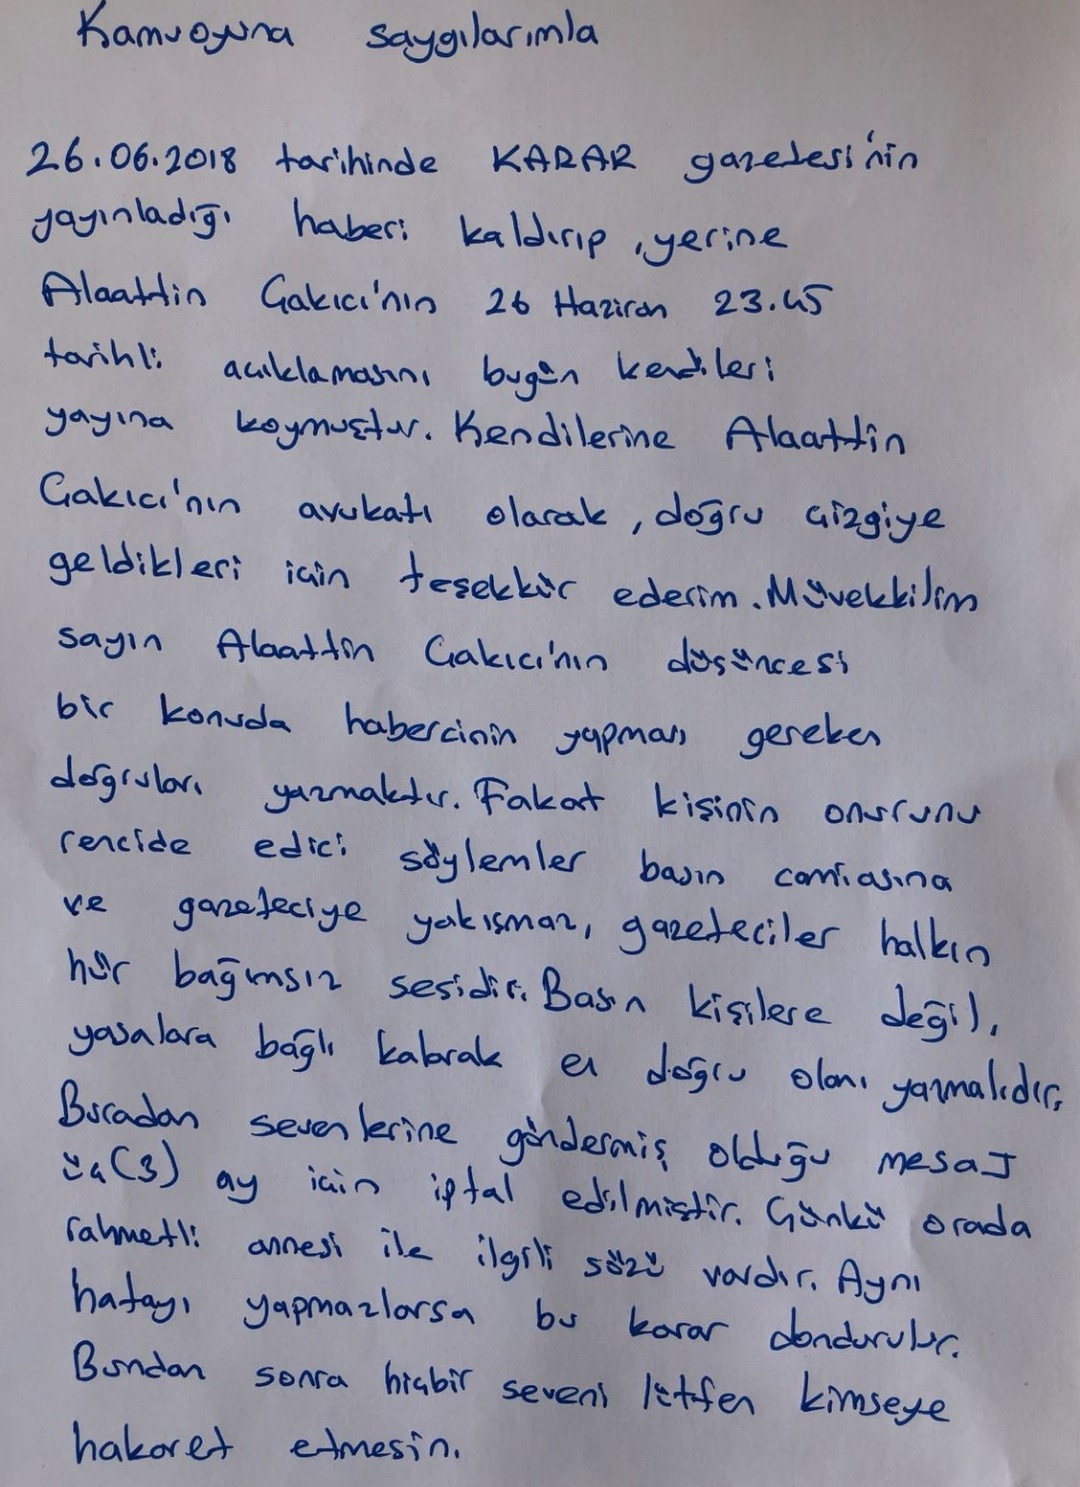 Kamuoyuna saygılarımla
26.06.2018 tarihinde KARAR gazetesi'nin
yayınladığı haberi kaldırıp, yerine
Alaattin Çakıcı'nın 26 Haziran 23.45
tarihli açıklamasını bugün kendileri
yayına koymuştur. Kendilerine Alaattin
Çakıcı'nın avukatı olarak, doğru çizgiye
geldikleri için teşekkür ederim. Müvekkilim
sayın Alaattin Çakıcı'nın düşüncesi
bir konuda habercinin yapması gereken
doğruları yazmaktır. Fakat kişinin onurunu
rencide edici söylemler basın camiasına
ve gazeteciye yakışmaz, gazeteciler halkın
hür bağımsız sesidir. Basın kişilere değil,
yasalara bağlı kalarak en doğru olanı yazmalıdır.
Buradan sevenlerine göndermiş olduğu mesaj
üç (3) ay için iptal edilmiştir. Çünkü orada
rahmetli annesi ile ilgili sözü vardır. Aynı
hatayı yapmazlarsa bu karar dondurulur.
Bundan sonra hiçbir seveni lütfen kimseye
hakaret etmesin.